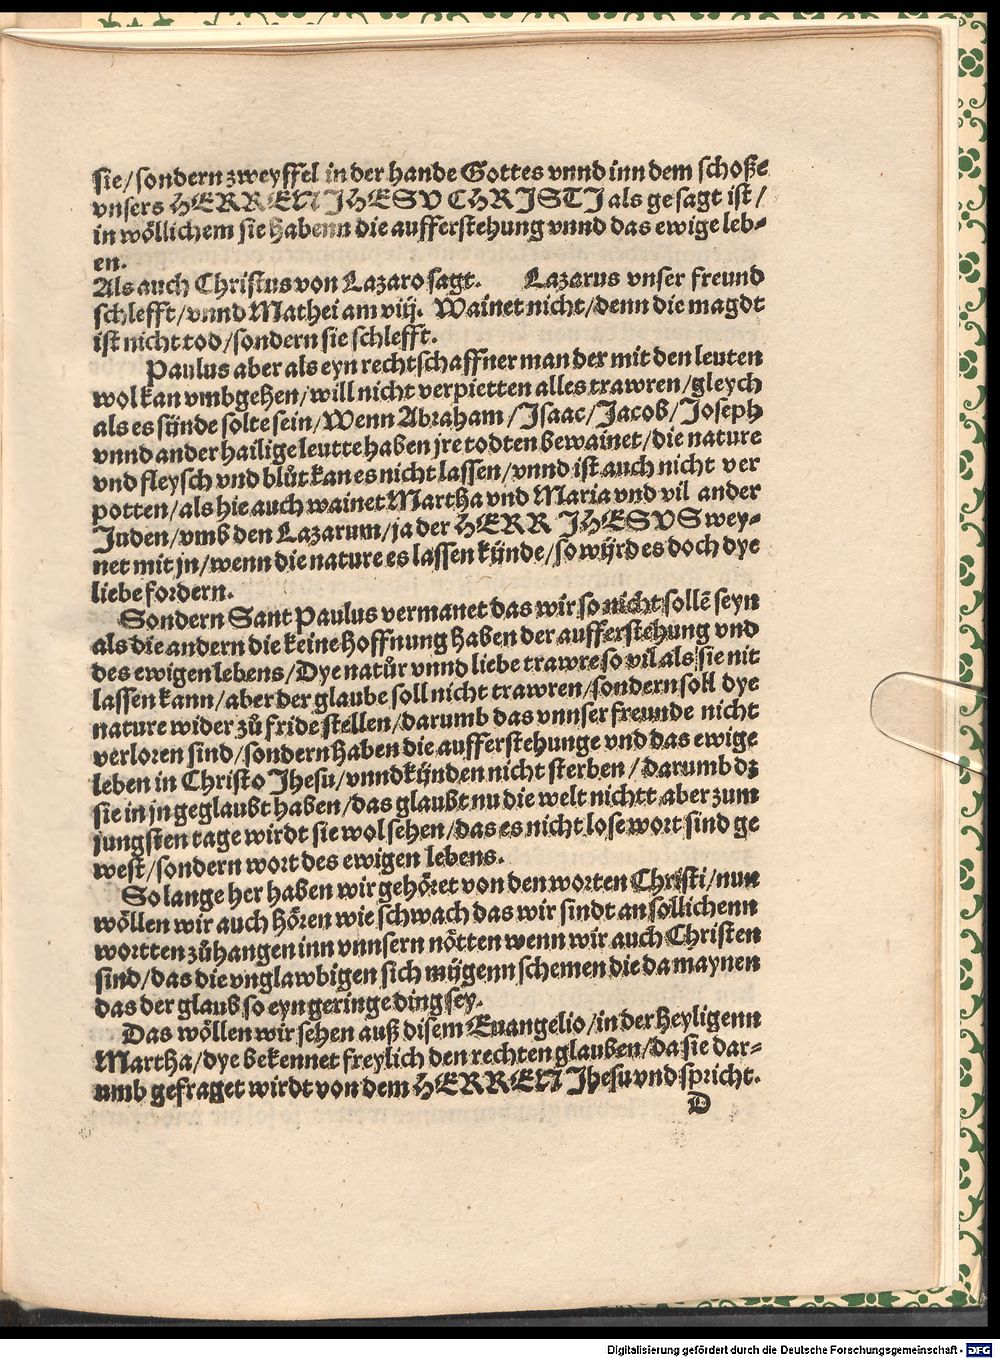 sie/sondern zweyffel in der hande Gottes vnnd inn dem schoße
vnsers HERREN JHESV CHRJSTJ als gesagt ist/
in wöllichem sie habenn die aufferstehung vnnd das ewige leb-
en.
Als auch Christus von Lazaro sagt. Lazarus vnser freund
schlefft/vnnd Mathei am viij. Wainet nicht/denn die magdt
ist nicht tod/sondern sie schlefft.
Paulus aber als eyn rechtschaffner man der mit den leuten
wol kan vmbgehen/will nicht verpietten alles trawren/gleych
als es sünde solte sein/Wenn Abraham/Jsaac/Jacob/Joseph
vnnd ander hailige leutte haben jre todten bewainet/die nature
vnd fleysch vnd blůt kan es nicht lassen/vnnd ist auch nicht ver
potten/als hie auch wainet Martha vnd Maria vnd vil ander
Juden/vmb den Lazarum/ja der HERR JHESVS wey-
net mit jn/wenn die nature es lassen künde/so würd es doch dye
liebe fordern.
Sondern Sant Paulus vermanet das wir so nicht sollē seyn
als die andern die keine hoffnung haben der aufferstehung vnd
des ewigen lebens/Dye natůr vnnd liebe trawre so vil als sie nit
lassen kann/aber der glaube soll nicht trawren/sondern soll dye
nature wider zů fride stellen/darumb das vnnser freunde nicht
verloren sind/sondern haben die aufferstehunge vnd das ewige
leben in Christo Jhesu/vnnd künden nicht sterben/darumb dz
sie in jn geglaubt haben/das glaubt nu die welt nichtt aber zum
jungsten tage wirdt sie wol sehen/das es nicht lose wort sind ge
west/sondern wort des ewigen lebens.
So lange her haben wir gehöret von den worten Christi/nun
wöllen wir auch hören wie schwach das wir sindt an sollichenn
wortten zů hangen inn vnnsern nötten wenn wir auch Christen
sind/das die vnglawbigen sich mügenn schemen die da maynen
das der glaub so eyn geringe ding sey.
Das wöllen wir sehen auß disem Euangelio/in der heyligenn
Martha/dye bekennet freylich den rechten glauben/da sie dar-
umb gefraget wirdt von dem HERREN Jhesu vnd spricht.
D
Digitalisierung gefördert durch die Deutsche Forschungsgemeinschaft - DFG